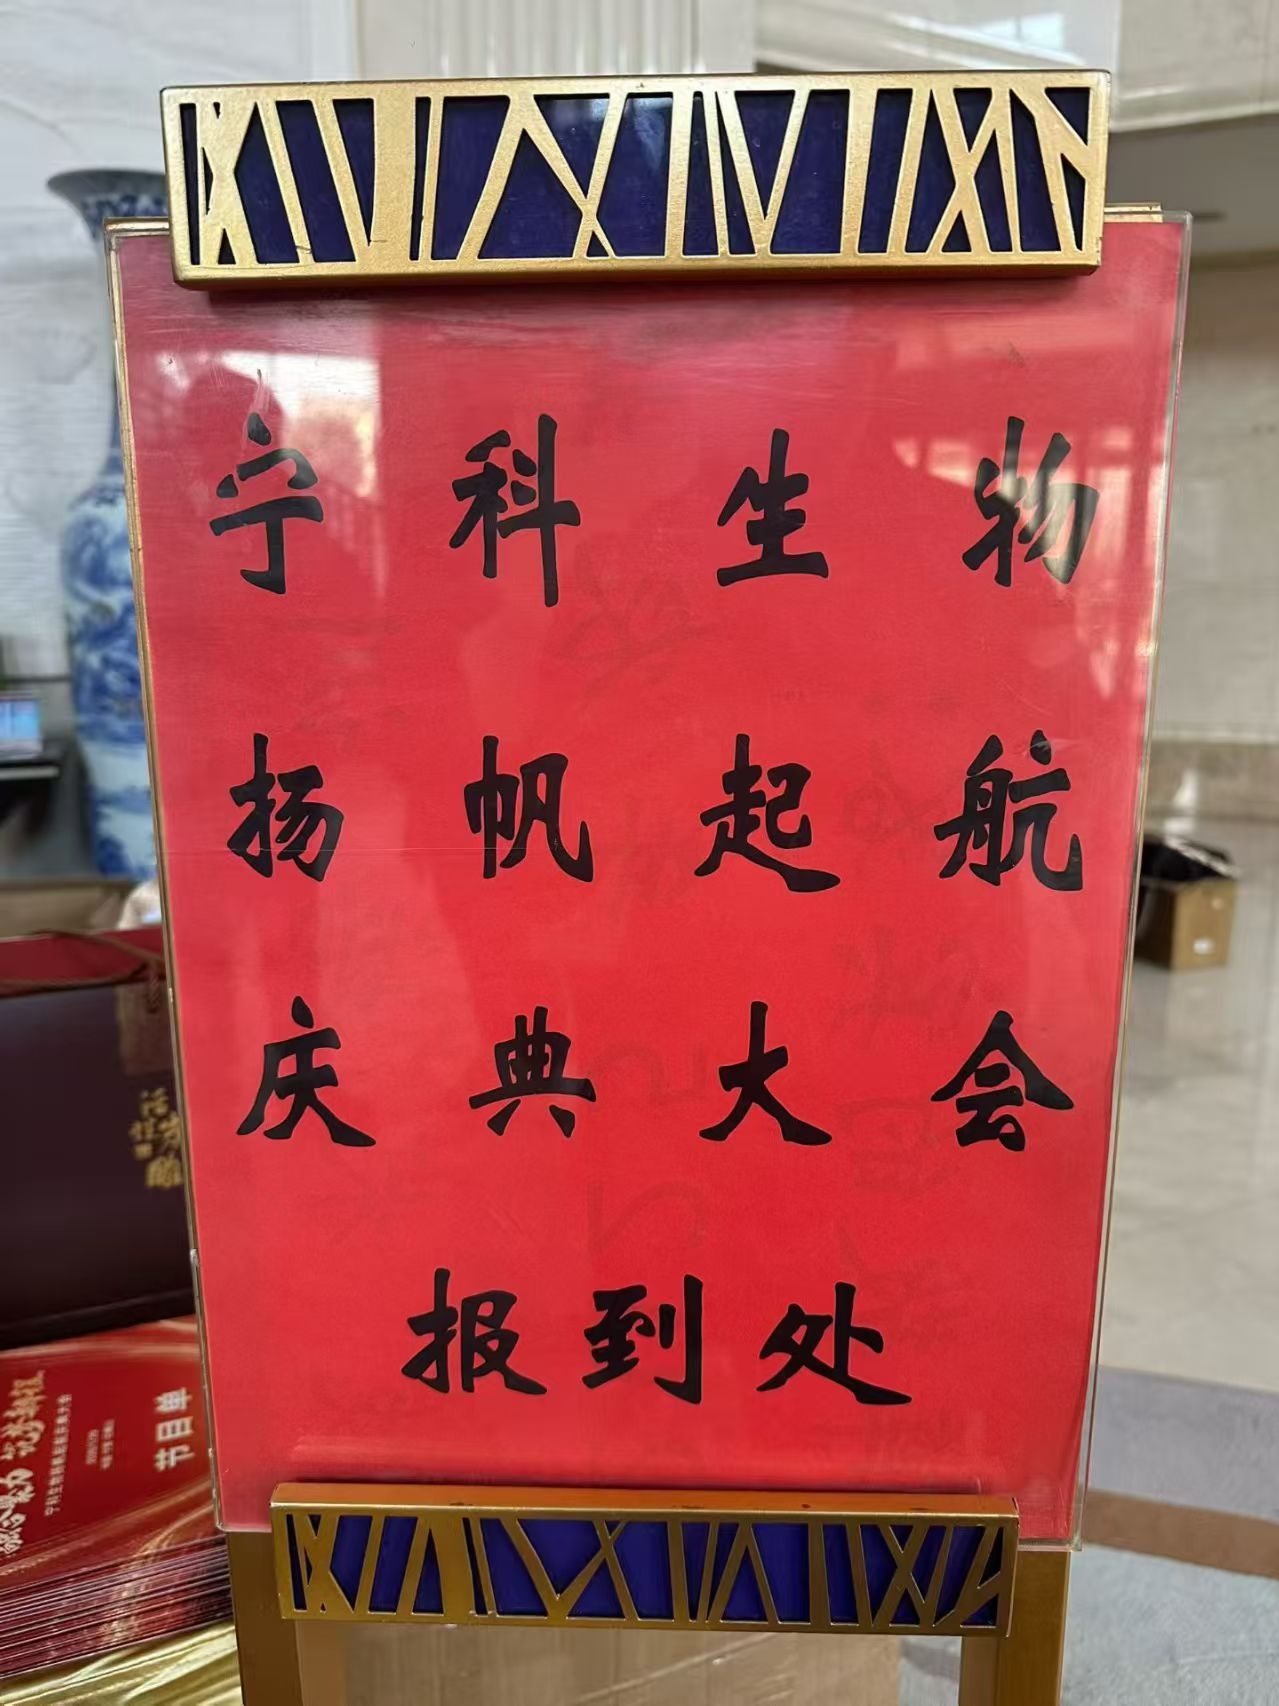 宁科生物
扬帆起航
庆典大会
报到处
节目单